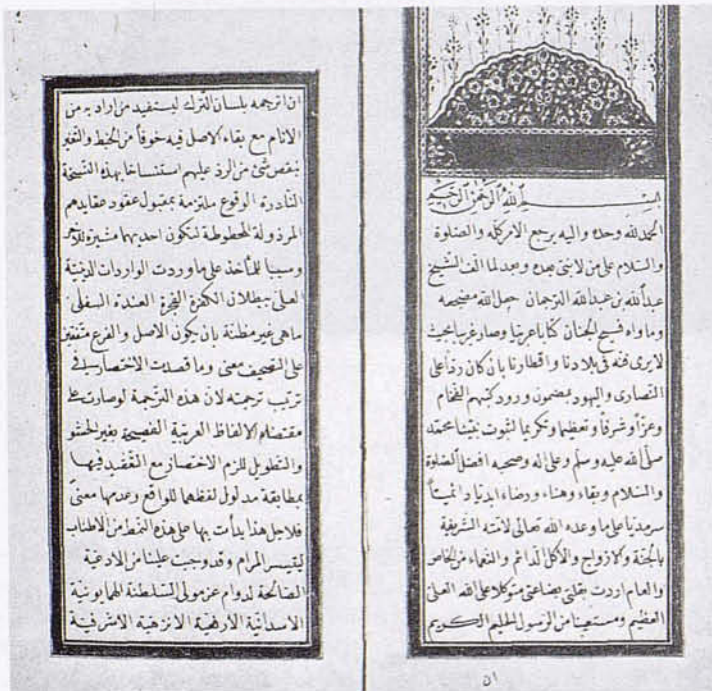 بسم الله الرحمن الرحيم
الحمد لله وحده واليه يرجع الامر كله والصلوة
والسلام على من لا نبى بعده وبعد لما الف الشيخ
عبد الله بن عبد الله الترجمان جعل الله مضجعه
وماواه فسيح الجنان كتابا عربيا وصار غريبا بحيث
لا يرى فنه فى بلادنا واقطارنا بان كان ردا على
النصارى واليهود بمضمون ورود كتبهم الفخام
وعزا وشرفا وتعظيما وتكريما لثبوت نبينا محمد
صلى الله عليه وسلم وعلى اله وصحبه افضل الصلوة
والسلام وبقاء وهناء ورضاء ابديا دائميا
سرمديا على ما وعده الله تعالى لامته الشريفة
بالجنة والازواج والاكل الدائم والنعماء من الخاص
والعام اردت بقلتى بضاعتى متوكلا على الله العلى
العظيم ومستعينا من الرسول الحليم الكريم
ان
ان اترجمه بلسان الترك ليستفيد من اراد به من
الانام مع بقاء الاصل فيه خوفا من الخبط والتغير
بنقص شئ من الرد عليهم استنساخا بهذه النسيخة
النادرة الوقوع ملتزمة بمقبول عقود عقايدهم
المرذولة المحطوطة لتكون احديهما مشيرة للاخر
وسببا للمأخذ على ما وردت الواردات الدينية
العلى ببطلان الكفرة الفجرة العندة السفلى
ما هى غير مظنة بان يكون الاصل والفرع متفقين
على التصحيف معنى وما قصدت الاختصار فى
ترتيب ترجمته لان هذه الترجمة لو صارت على
مقتضاء الالفاظ العربية الفصيحة بغير الحشو
والتطويل للزم الاختصار مع التعقيد فيها
بمطابقة مدلول لفظهما للواقع وعدمها معنى
فلاجل هذا بدأت بها على هذه النمط من الاطناب
ليتيسر المرام وقد وجبت علينا من الادعية
الصالحة لدوام عز مولى السلطنة الهمايونية
الاسدانية الارفعية الانزهية الاشرفية